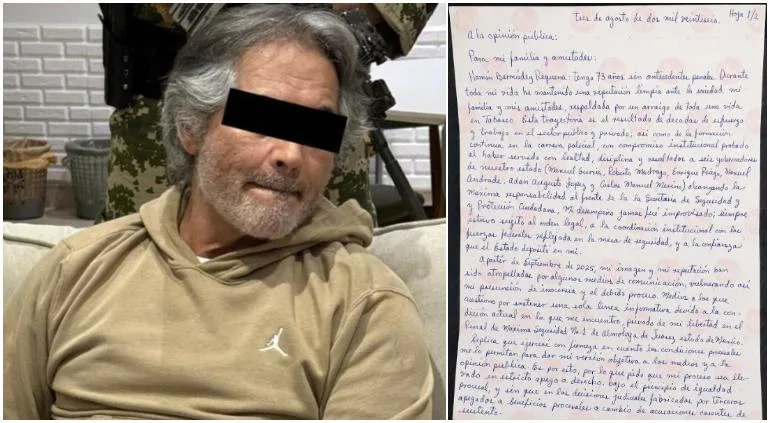 tres de agosto de dos mil veintiseis. Hoja 1/2
A la opinión publica:
Para mi familia y amistades:
Hernán Bermúdez Requena: tengo 73 años sin antecedentes penales. Durante
toda mi vida he mantenido una reputación limpia ante la sociedad mi
familia y mis amistades, respaldada por un arraigo de toda una vida
en Tabasco. Esta trayectoria es el resultado de decadas de esfuerzo
y trabajo en el sector público y privado; así como de la formación
continua en la carrera policial, con compromiso institucional probado
al haber servido con lealtad, disciplina y resultados a seis gobernadores
de nuestro estado (Manuel Gurria, Roberto Madrazo, Enrique Priego, Manuel
Andrade, Adan Augusto Lopez y Carlos Manuel Merino) alcanzando la
maxima responsabilidad al frente de la la Secretaria de Seguridad y
y Protección Ciudadana. Mi desempeño jamas fué improvisado; siempre
estuvo sujeto al orden legal, a la coordinación institucional con las
fuerzas federales reflejada en la mesa de seguridad, y a la confianza
que el Estado deposito en mi.
A partir de Septiembre de 2025, mi imagen y mi reputación han
sido atropelladas por algunos medios de comunicación, vulnerando así
mi presunción de inocencia y el debido proceso. Medios a los que
cuestiono por sostener una sola linea informativa debido a la con-
dición actual en la que me encuentro, privado de mi libertad en el
Penal de Maxima Seguridad No. 1 de Almoloya de Juarez estado de Mexico.
Replica que ejerceré con firmeza en cuanto las condiciones procesales
me lo permitan para dar mi versión objetiva a los medios y a la
opinión publica. Es por esto, por lo que pido que mi proceso sea lle-
vado en estricto apego a derecho, bajo el principio de igualdad
procesal, y sin que en las decisiones judiciales fabricadas por terceros
apegados a beneficios procesales a cambio de acusaciones carentes de
sustento.